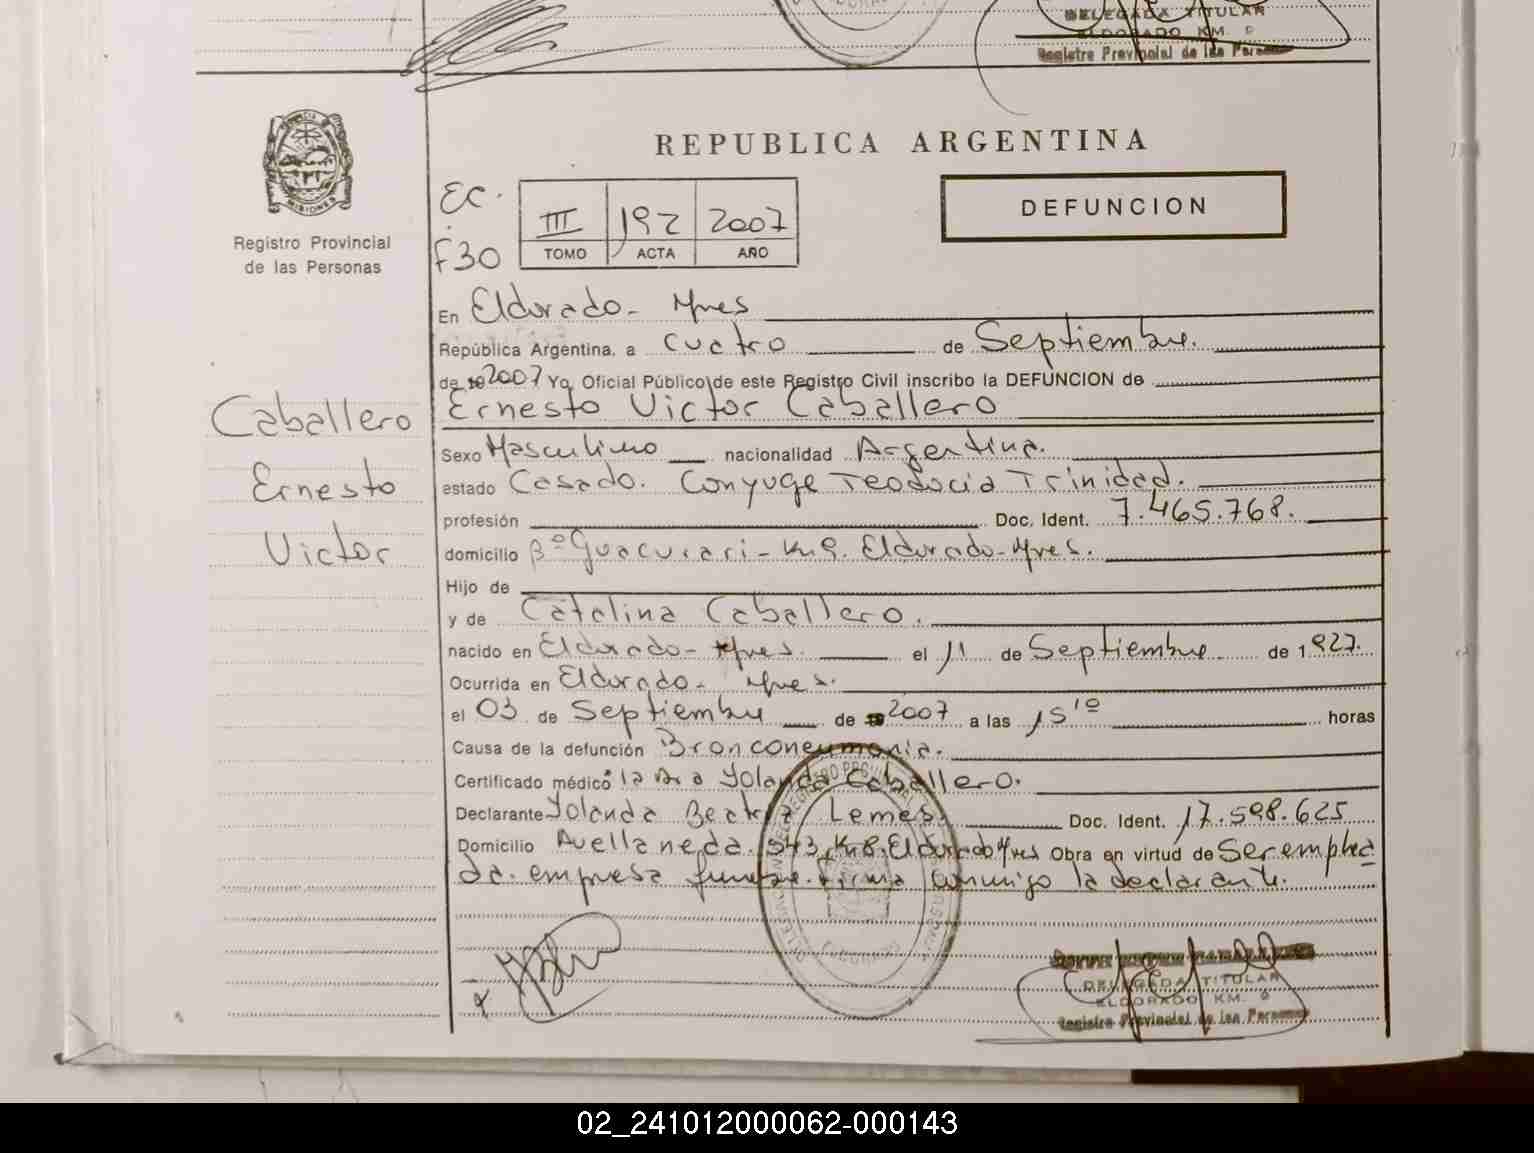 DELEGADA TITULAR
ELDORADO KM. 9
Registro Provincial de las Personas
REPUBLICA ARGENTINA
MISIONES
Registro Provincial
de las Personas
EC.
F30
III 192 2007
TOMO ACTA AÑO
DEFUNCION
En Eldorado - Mnes
República Argentina, a cuatro de Septiembre.
de 19 2007 Yo, Oficial Público de este Registro Civil inscribo la DEFUNCION de
Ernesto Victor Caballero
Caballero
Ernesto
Victor
Sexo Masculino nacionalidad Argentina.
estado Casado. Conyuge Teodocia Trinidad.
profesión Doc. Ident. 7.465.768.
domicilio Bº Guacurari - Km 9. Eldorado - Mnes.
Hijo de
y de Catalina Caballero.
nacido en Eldorado - Mnes. el 11 de Septiembre de 1.927.
Ocurrida en Eldorado - Mnes.
el 03 de Septiembre de 19 2007 a las 15'º horas
Causa de la defunción Bronconeumonia.
Certificado médico la Dra Yolanda Caballero.
Declarante Yolanda Beatriz Lemes. Doc. Ident. 17.598.625
Domicilio Avellaneda. 543, Km 8. Eldorado Mnes Obra en virtud de Ser emplea
da. empresa funebre. firma conmigo la declarante.
DELEGADA TITULAR
ELDORADO KM. 9
Registro Provincial de las Personas
02_241012000062-000143